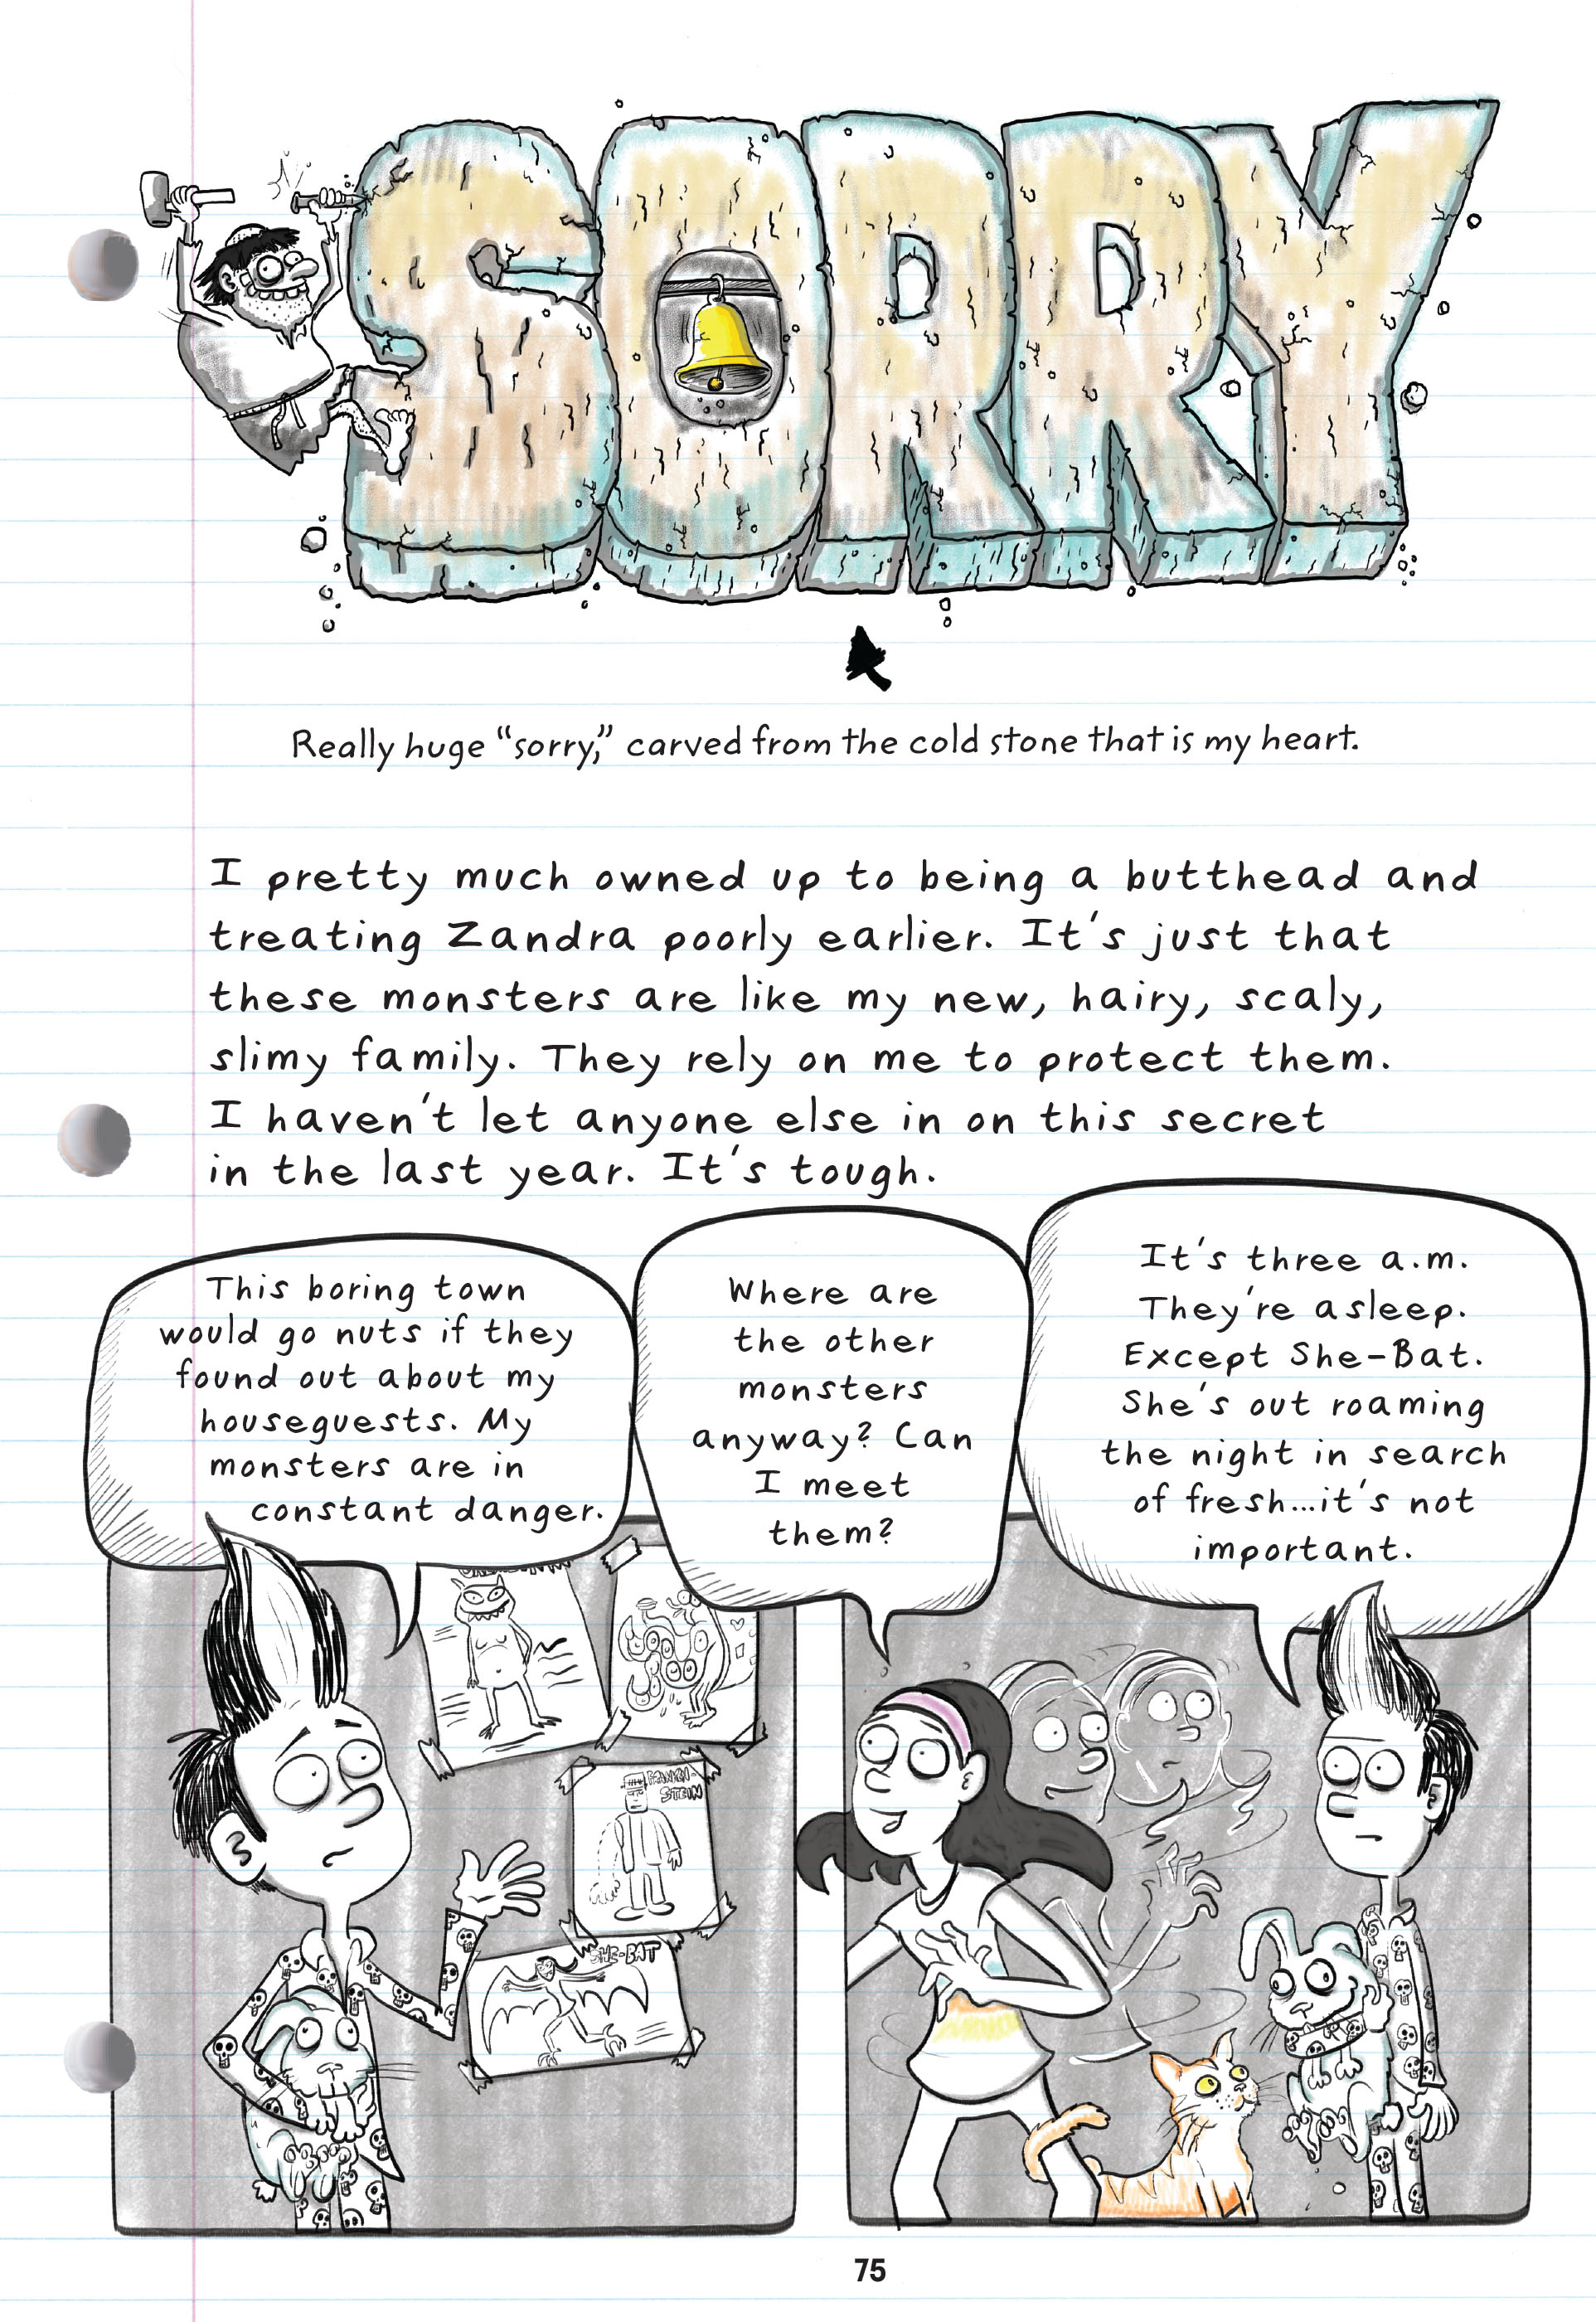 SORRY
Really huge “sorry,” carved from the cold stone that is my heart.
I pretty much owned up to being a butthead and
treating Zandra poorly earlier. It's just that
these monsters are like my new, hairy, scaly,
slimy family. They rely on me to protect them.
I haven't let anyone else in on this secret
in the last year. It's tough.
This boring town
would go nuts if they
found out about my
houseguests. My
monsters are in
constant danger.
Where are
the other
monsters
anyway? Can
I meet
them?
It's three a.m.
They're asleep.
Except She-Bat.
She's out roaming
the night in search
of fresh...it's not
important.
FRANKEN-
STEIN
SHE-BAT
75